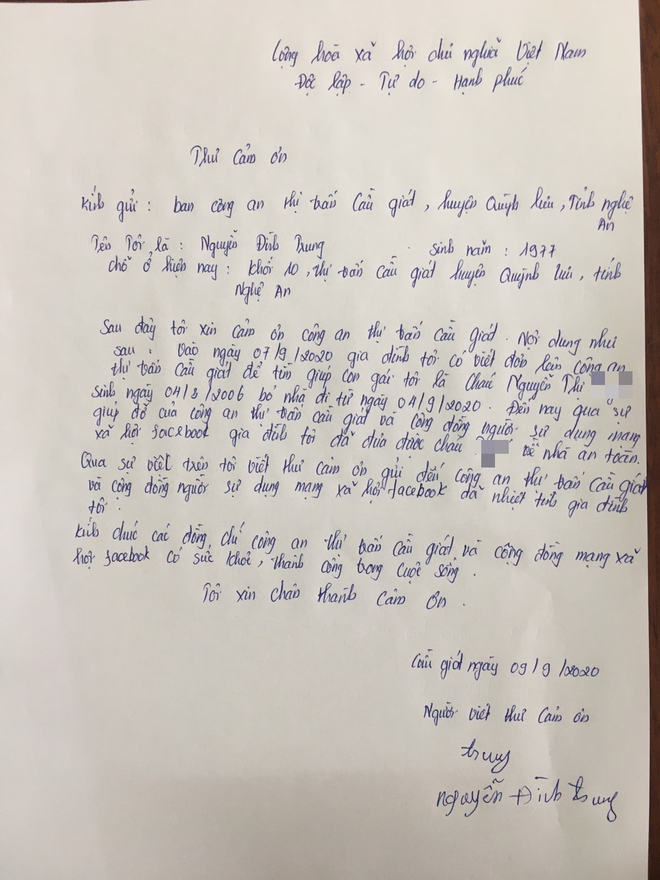 Cộng hoà xã hội chủ nghĩa Việt Nam
Độc lập - Tự do - Hạnh phúc
Thư cảm ơn
Kính gửi : ban công an thị trấn Cầu giát, huyện Quỳnh lưu, Tỉnh nghệ An
Tên Tôi là : Nguyễn Đình Trung . sinh năm : 1977
chỗ ở hiện nay : khối 10, thị trấn cầu giát huyện Quỳnh lưu, tỉnh
Nghệ An
Sau đây tôi xin cảm ơn công an thị trấn cầu giát. Nội dung như
sau : Vào ngày 07/9/2020 gia đình tôi có viết đơn lên công an
thị trấn cầu giát để tìm giúp con gái tôi là cháu Nguyễn Thị
sinh ngày 04/3/2006 bỏ nhà đi từ ngày 04/9/2020. Đến nay qua sự
giúp đỡ của công an thị trấn cầu giát và cộng đồng người sử dụng mạng
xã hội facebook gia đình tôi đã đưa được cháu về nhà an toàn.
Qua sự việt trên tôi viết thư cảm ơn gửi đến công an thị trấn cầu giát
và cộng đồng người sử dụng mạng xã hội facebook đã nhiệt tình gia đình
tôi.
Kính chúc các đồng chí công an thị trấn cầu giát và cộng đồng mạng xã
hội facebook có sức khoẻ, thành công trong cuộc sống.
Tôi xin chân thành cảm ơn.
Cầu giát ngày 09/9/2020
Người viết thư cảm ơn
trung
nguyễn Đình trung